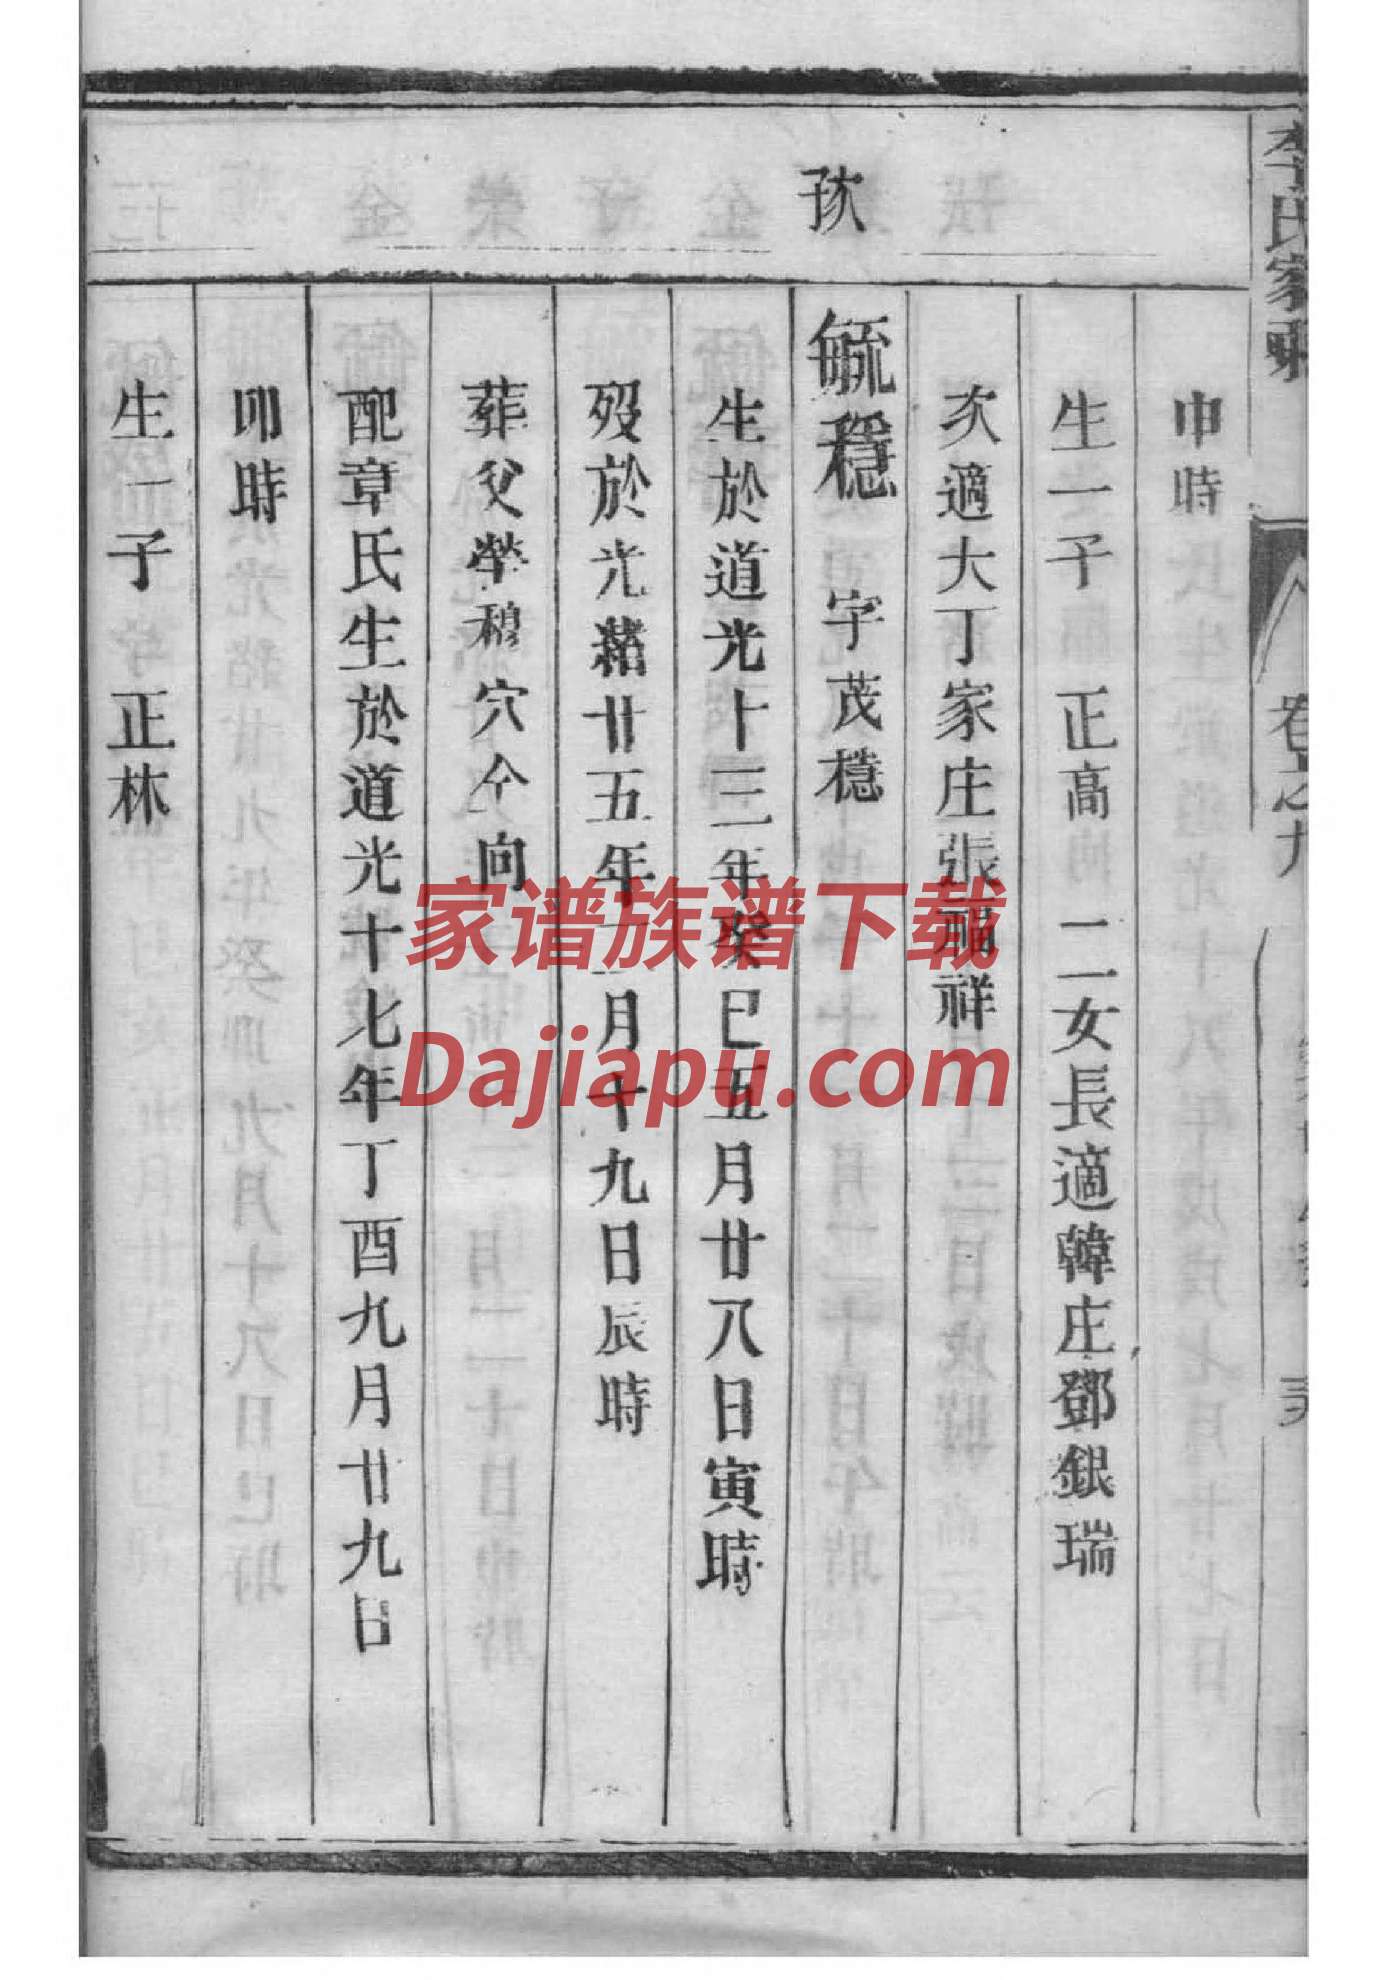 李氏家乘
卷之九
申時
生一子 正高 二女長適韓庄鄧銀瑞
次適大丁家庄張福祥
毓穩 字茂穩
生於道光十三年癸巳五月廿八日寅時
歿於光緒廿五年二月十九日辰時
葬父榮穆穴仝向
配章氏生於道光十七年丁酉九月廿九日
卯時
生一子 正林
家谱族谱下载
Dajiapu.com